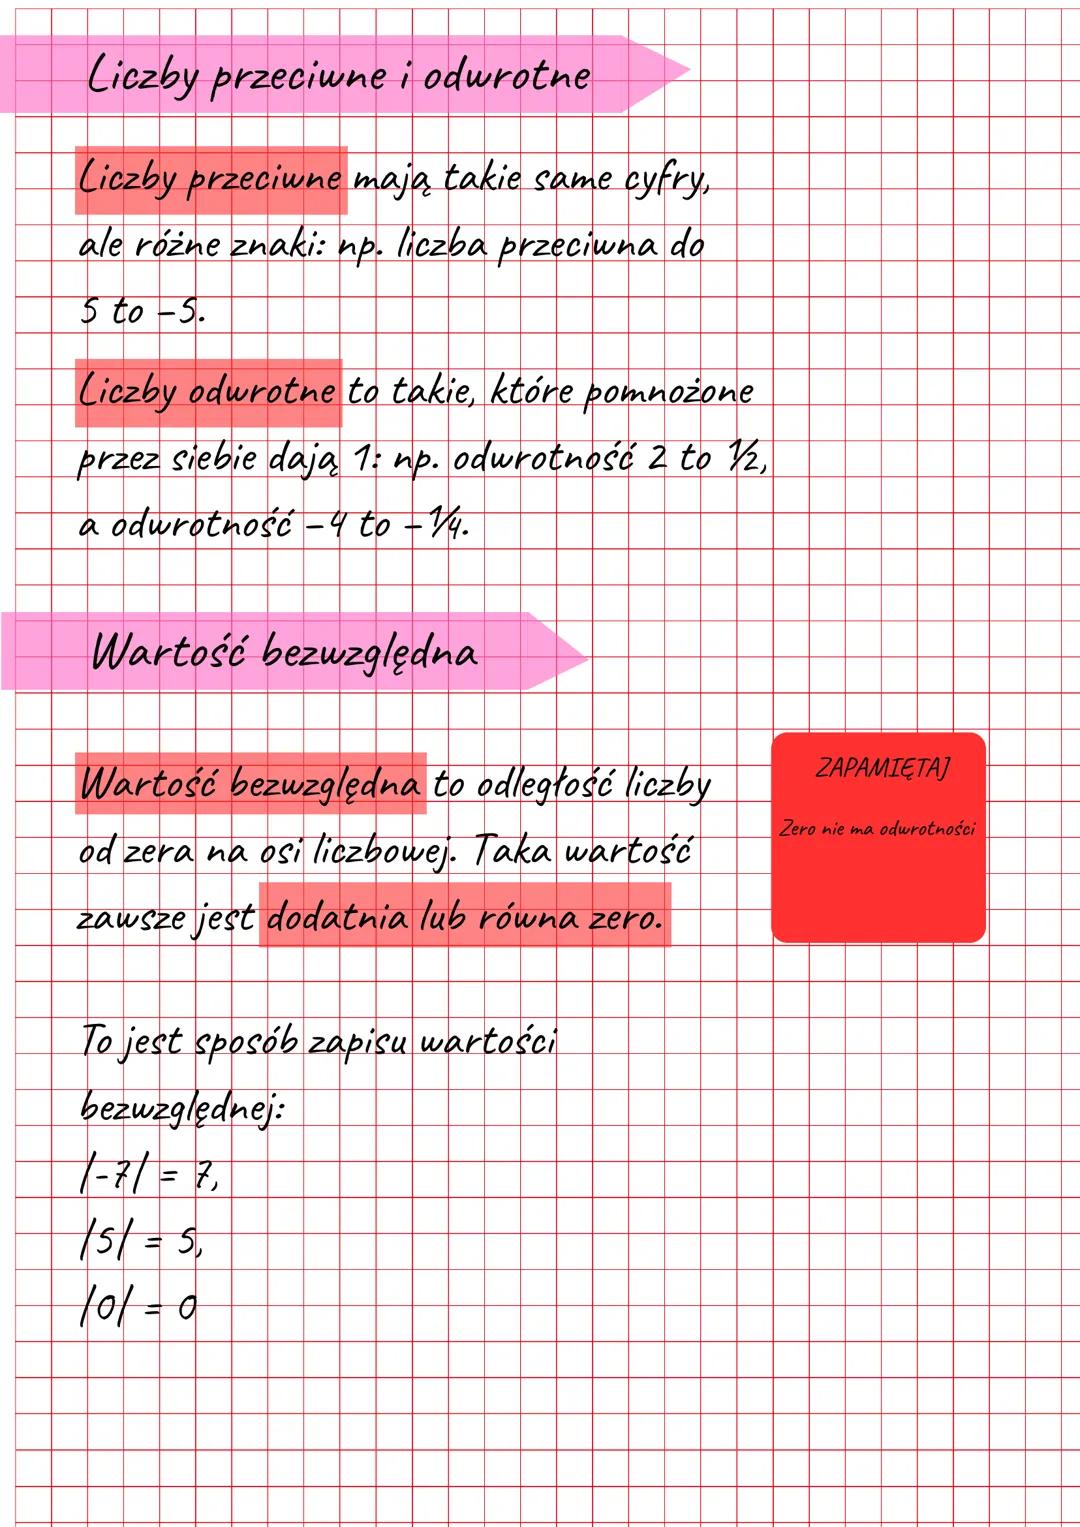 Liczby przeciwne i odwrotne
Liczby przeciwne mają takie same cyfry,
ale różne znaki: np. liczba przeciwna do
5 to -5.
Liczby odwrotne to takie, które pomnożone
przez siebie dają 1: np. odwrotność 2 to ½,
a odwrotność -4 to -¼.
Wartość bezwzględna
Wartość bezwzględna to odległość liczby
od zera na osi liczbowej. Taka wartość
zawsze jest dodatnia lub równa zero.
ZAPAMIĘTAJ
Zero nie ma odwrotności
To jest sposób zapisu wartości
bezwzględnej:
|-7| = 7,
|5| = 5,
|0| = 0